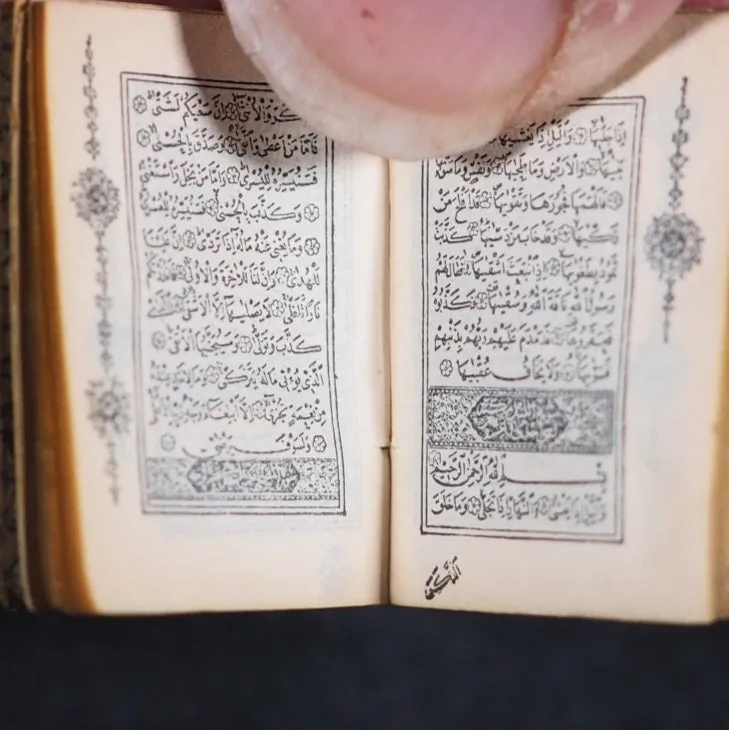 اِذَا جَلّٰيهَا ۝ وَالَّيْلِ اِذَا يَغْشٰيهَا
بَنٰيهَا ۝ وَالْاَرْضِ وَمَا طَحٰيهَا ۝ وَنَفْسٍ وَمَا سَوّٰيهَا
۝ فَاَلْهَمَهَا فُجُورَهَا وَتَقْوٰيهَا ۝ قَدْ اَفْلَحَ مَنْ
زَكّٰيهَا ۝ وَقَدْ خَابَ مَنْ دَسّٰيهَا ۝ كَذَّبَتْ
ثَمُودُ بِطَغْوٰيهَا ۝ اِذِ انْبَعَثَ اَشْقٰيهَا ۝ فَقَالَ لَهُمْ
رَسُولُ اللّٰهِ نَاقَةَ اللّٰهِ وَسُقْيٰهَا ۝ فَكَذَّبُوهُ
فَعَقَرُوهَا ۝ فَدَمْدَمَ عَلَيْهِمْ رَبُّهُمْ بِذَنْبِهِمْ
فَسَوّٰيهَا ۝ وَلَا يَخَافُ عُقْبٰيهَا ۝
بِسْمِ اللّٰهِ الرَّحْمٰنِ الرَّحِيمِ
وَالَّيْلِ اِذَا يَغْشٰى ۝ وَالنَّهَارِ اِذَا تَجَلّٰى ۝ وَمَا خَلَقَ
الذَّكَرَ
وَالْاُنْثٰى ۝ اِنَّ سَعْيَكُمْ لَشَتّٰى ۝
فَاَمَّا مَنْ اَعْطٰى وَاتَّقٰى ۝ وَصَدَّقَ بِالْحُسْنٰى ۝
فَسَنُيَسِّرُهُ لِلْيُسْرٰى ۝ وَاَمَّا مَنْ بَخِلَ وَاسْتَغْنٰى
۝ وَكَذَّبَ بِالْحُسْنٰى ۝ فَسَنُيَسِّرُهُ لِلْعُسْرٰى
۝ وَمَا يُغْنِى عَنْهُ مَالُهُ اِذَا تَرَدّٰى ۝ اِنَّ عَلَيْنَا
لَلْهُدٰى ۝ وَاِنَّ لَنَا لَلْاٰخِرَةَ وَالْاُولٰى ۝ فَاَنْذَرْتُكُمْ
نَارًا تَلَظّٰى ۝ لَا يَصْلٰيهَا اِلَّا الْاَشْقٰى ۝ الَّذِى
كَذَّبَ وَتَوَلّٰى ۝ وَسَيُجَنَّبُهَا الْاَتْقٰى ۝
الَّذِى يُؤْتِى مَالَهُ يَتَزَكّٰى ۝ وَمَا لِاَحَدٍ عِنْدَهُ
مِنْ نِعْمَةٍ تُجْزٰى ۝ اِلَّا ابْتِغَاءَ وَجْهِ رَبِّهِ الْاَعْلٰى
۝ وَلَسَوْفَ يَرْضٰى ۝